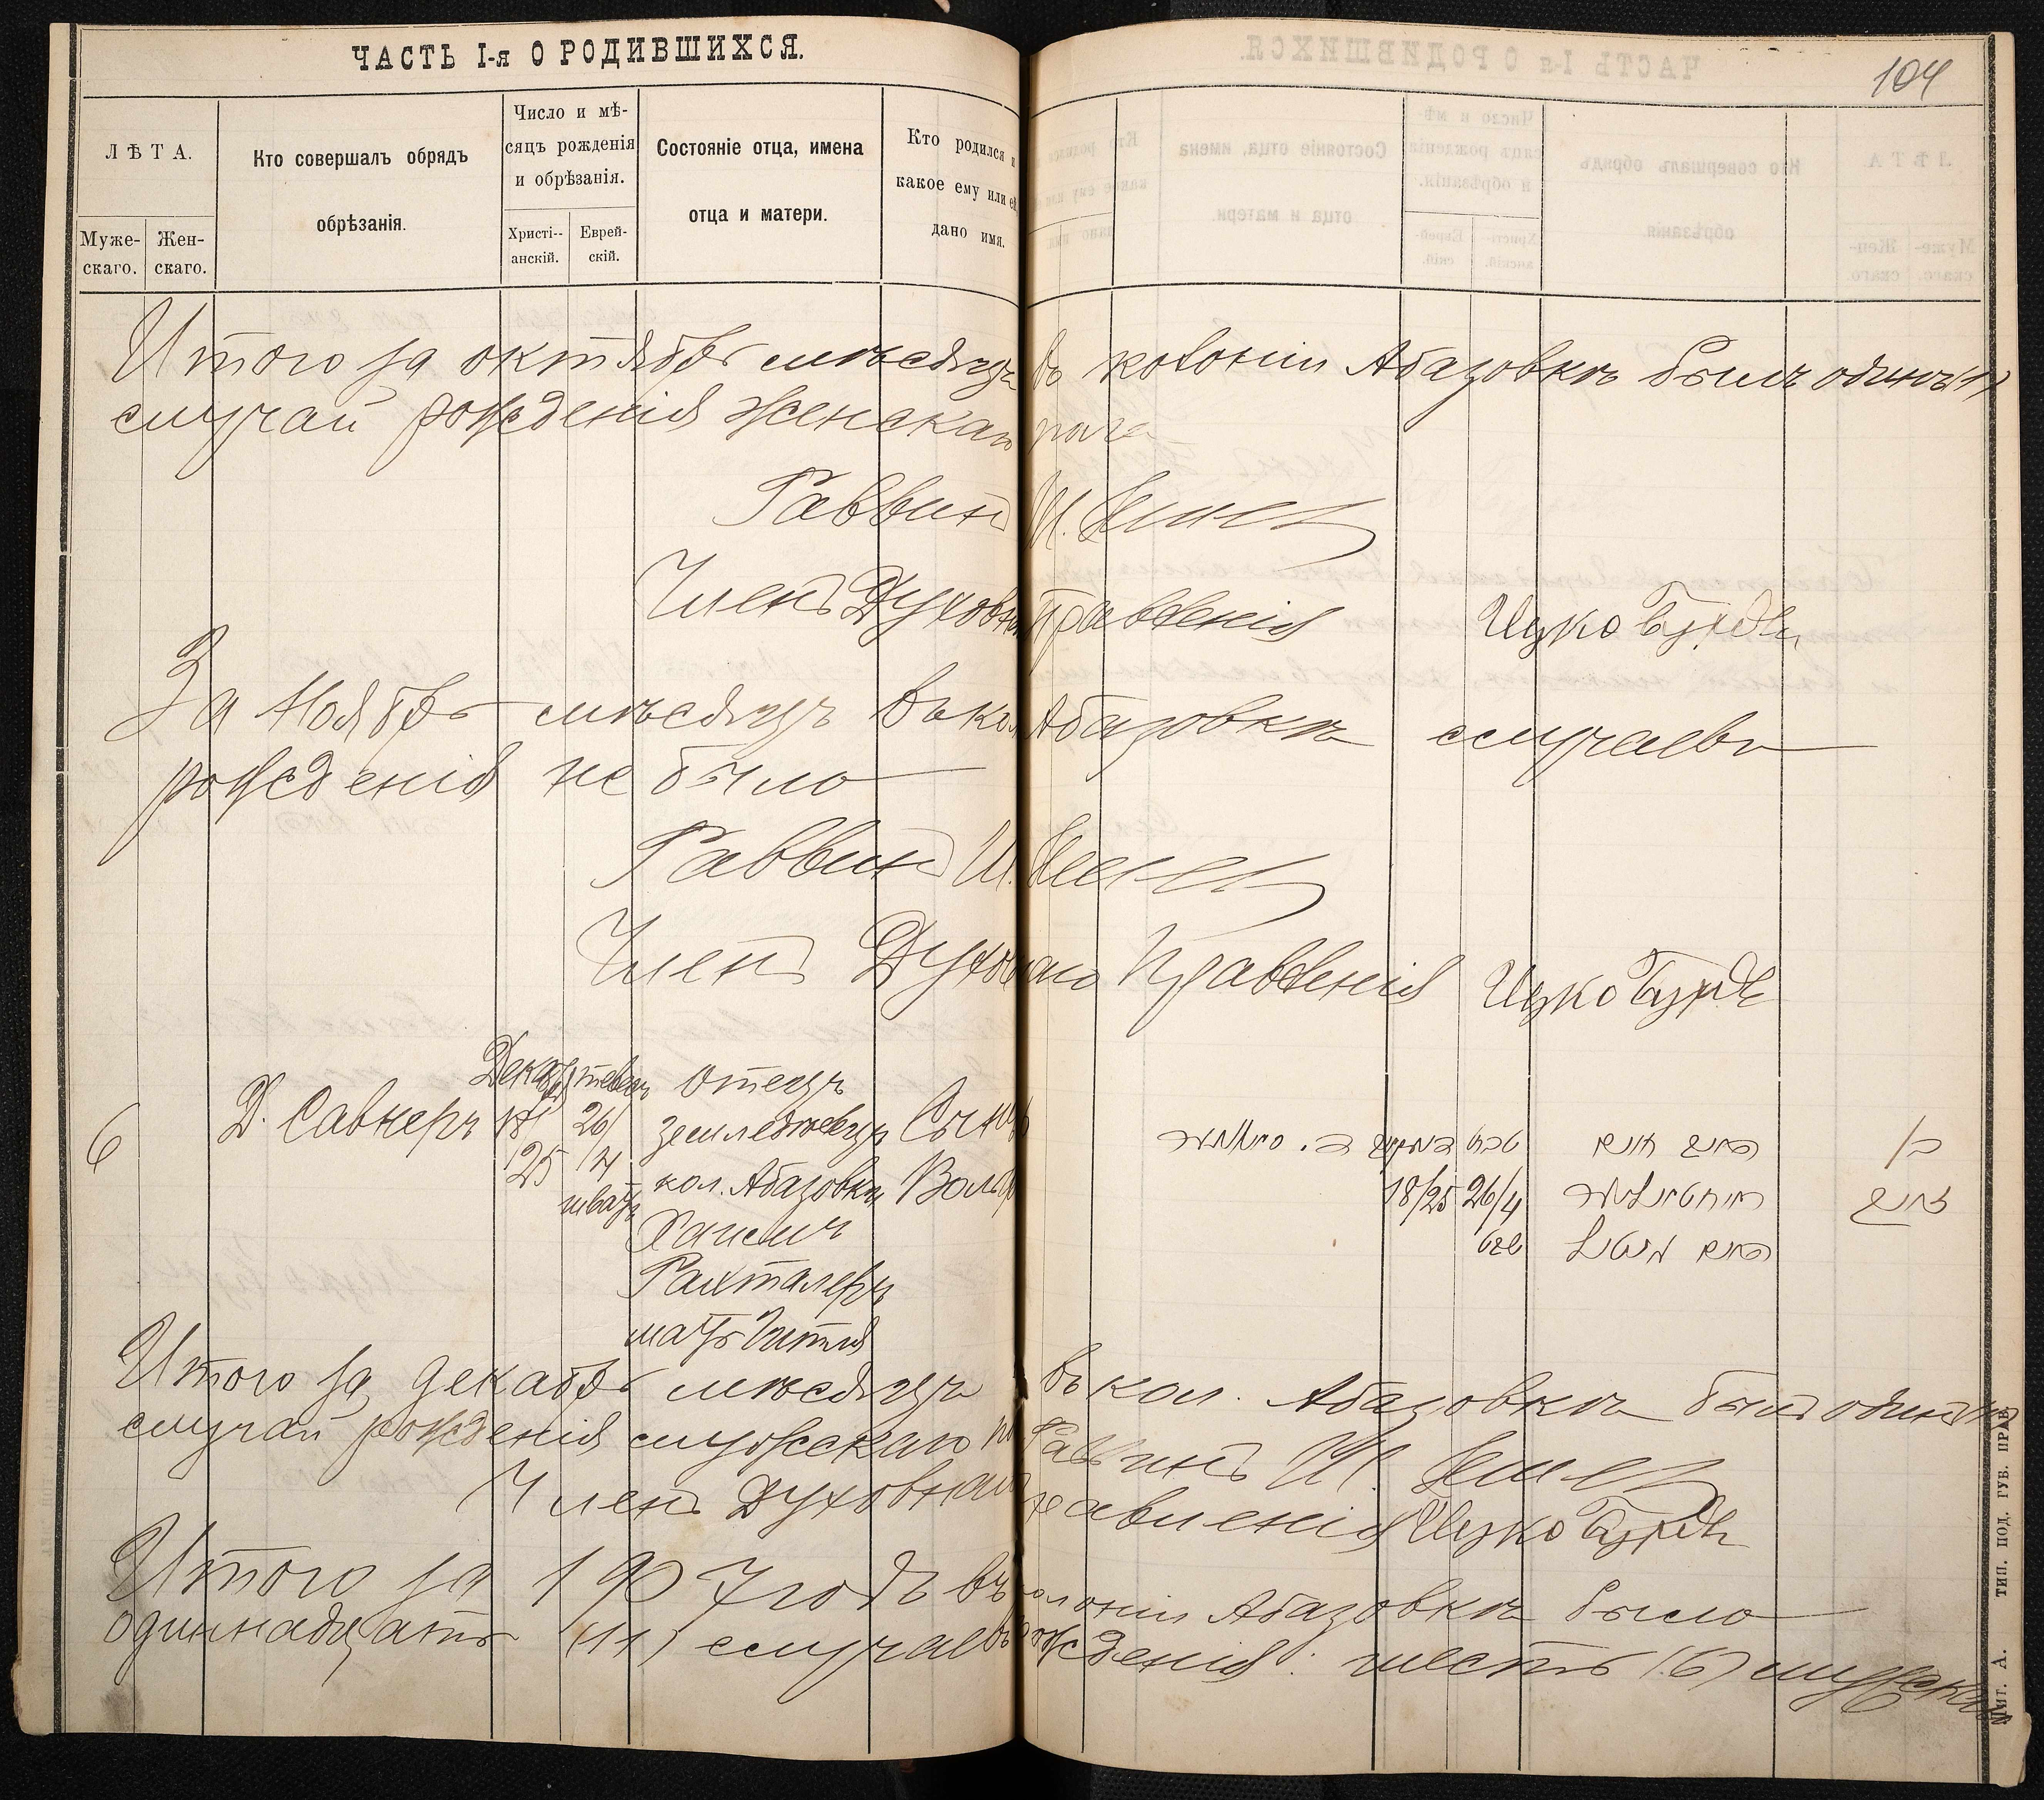 ЧАСТЬ I-я О РОДИВШИХСЯ.
104
ЛѢТА.
Муже-
скаго.
Жен-
скаго.
Кто совершалъ обрядъ
обрѣзанія.
Число и мѣ-
сяцъ рожденія
и обрѣзанія.
Христі--
анскій.
Еврей-
скій.
Состояніе отца, имена
отца и матери.
Кто родился и
какое ему или ей
дано имя.
Итого за октябрь мѣсяцъ въ колоніи Абазовкѣ былъ одинъ (1)
случай рожденія женскаго пола
Раввинъ И.
Членъ Духовн Правленія Ицко
За Ноябрь мѣсяцъ въ кол Абазовкѣ случаевъ
рожденія не было
Раввинъ И.
Членъ Духовнаго Правленія Ицко
6
Д. Савнеръ
Декабрь
18/
25
тевесъ
26/
/4
шватъ
Отецъ
земледѣлецъ
кол. Абазовки
Хаимъ
Рахталеръ
мать Гитля
Сынъ
Вольф
18/25 26/4
שבט
בן
Итого за декабрь мѣсяцъ въ кол. Абазовкѣ былъ одинъ (1)
случай рожденія мужскаго по Раввинъ И.
Членъ Духовнаго Правленія Ицко
Итого за 1907 годъ въ колоніи Абазовкѣ было
одиннадцать (11) случаевъ рожденія: шесть (6) мужскаго
ТИП. ПОД. ГУБ. ПРАВ.